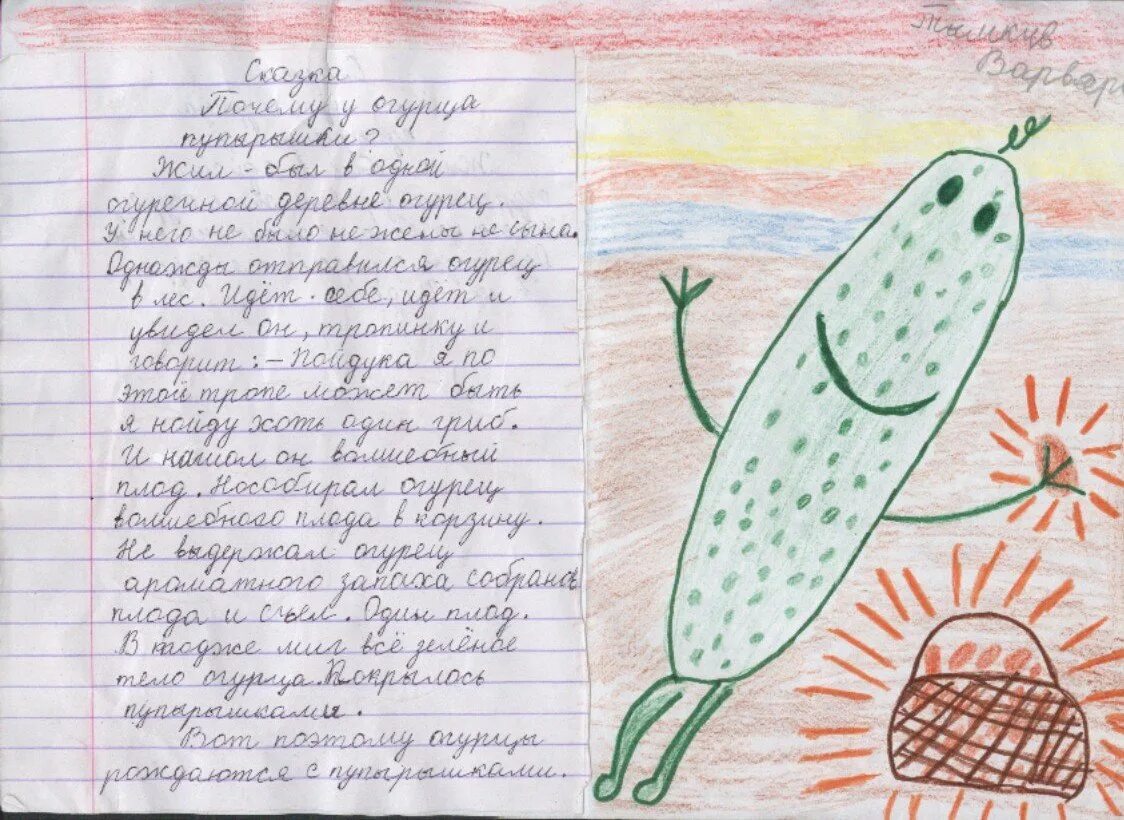 Сказка
Почему у огурца
пупырышки?
Жил-был в одной
огуречной деревне огурец.
У него не было не жены не сына.
Однажды отправился огурец
в лес. Идёт себе, идёт и
увидел он, тропинку и
говорит: - Пойдука я по
этой тропе может быть
я нойду хоть один гриб.
И нашол он волшебный
плод. Нособирал огурец
волшебного плода в корзину.
Не выдержал огурец
ароматного запаха собраного
плода и съел. Один плод.
В тодже миг всё зелёное
тело огурца. Покрылось
пупырышками.
Вот поэтому огурцы
рождаются с пупырышками.
Варвар